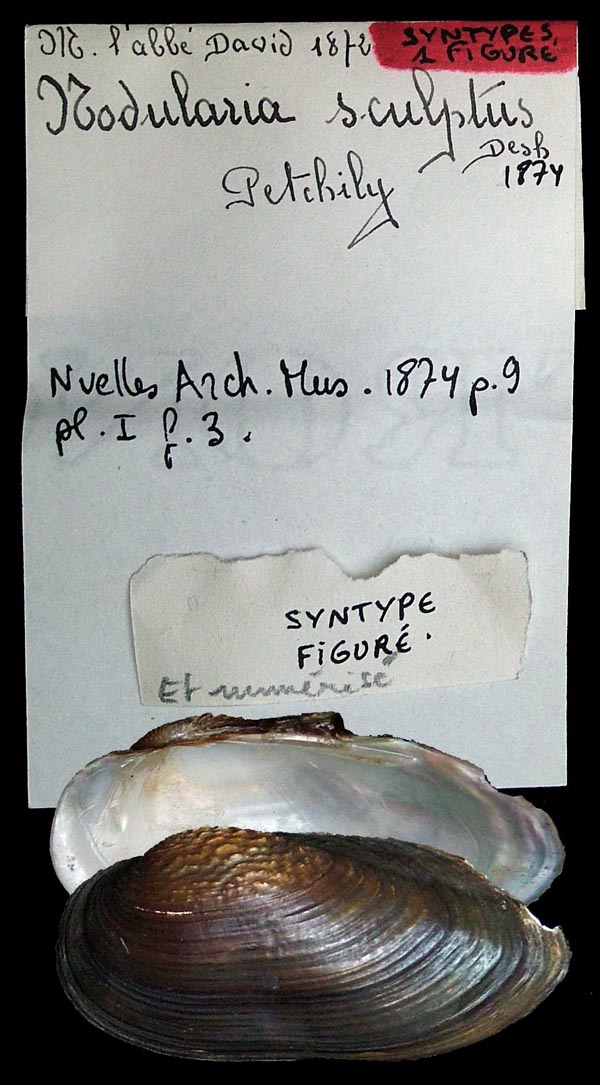 M. l'abbé David 1872
SYNTYPES,
1 FIGURÉ
Nodularia sculptus
Desh
1874
Petchily
Nvelles Arch. Mus. 1874 p.9
pl. I f. 3.
SYNTYPE
FIGURÉ.
Et numérisé